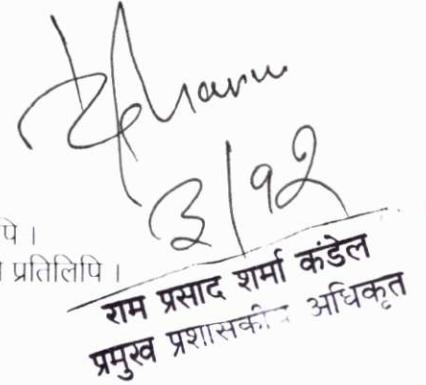 ३/१२
पि ।
प्रतिलिपि ।
राम प्रसाद शर्मा कंडेल
प्रमुख प्रशासकीय अधिकृत